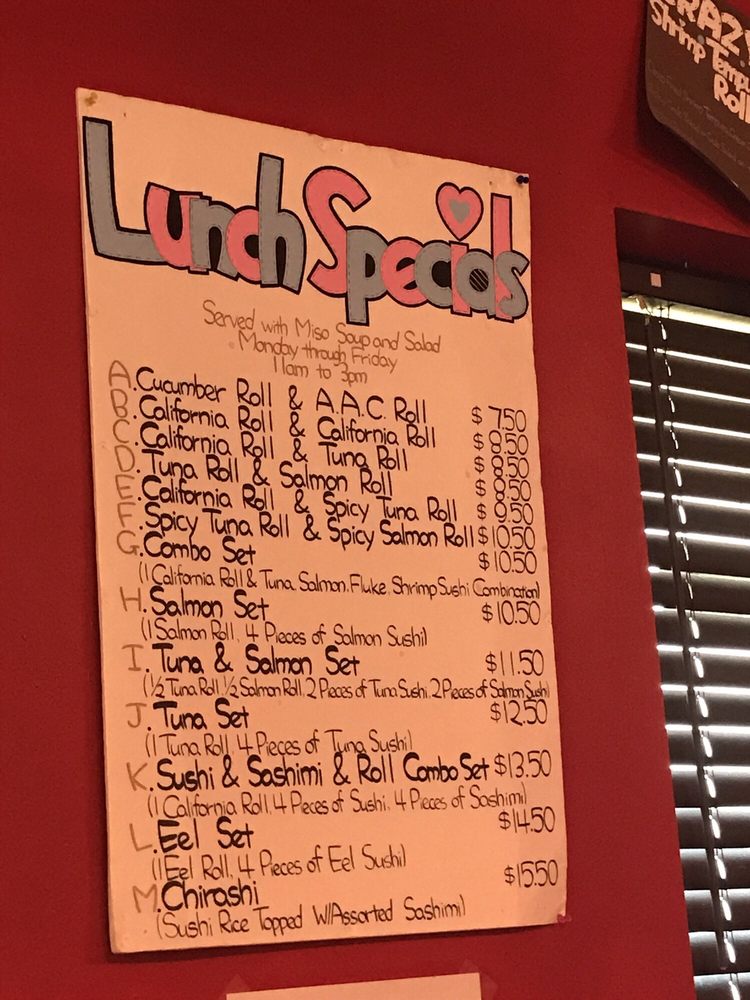 Lunch Specials
Served with Miso Soup and Salad
Monday through Friday
11am to 3pm
A. Cucumber Roll & A.A.C. Roll $7.50
B. California Roll & California Roll $8.50
C. California Roll & Tuna Roll $8.50
D. Tuna Roll & Salmon Roll $8.50
E. California Roll & Spicy Tuna Roll $9.50
F. Spicy Tuna Roll & Spicy Salmon Roll $10.50
G. Combo Set $10.50
(1 California Roll & Tuna, Salmon, Fluke, Shrimp Sushi Combination)
H. Salmon Set $10.50
(1 Salmon Roll, 4 Pieces of Salmon Sushi)
I. Tuna & Salmon Set $11.50
(1/2 Tuna Roll, 1/2 Salmon Roll, 2 Pieces of Tuna Sushi, 2 Pieces of Salmon Sushi)
J. Tuna Set $12.50
(1 Tuna Roll, 4 Pieces of Tuna Sushi)
K. Sushi & Sashimi & Roll Combo Set $13.50
(1 California Roll, 4 Pieces of Sushi, 4 Pieces of Sashimi)
L. Eel Set $14.50
(1 Eel Roll, 4 Pieces of Eel Sushi)
M. Chirashi $15.50
(Sushi Rice Topped W/Assorted Sashimi)
Shrimp Temp
Roll